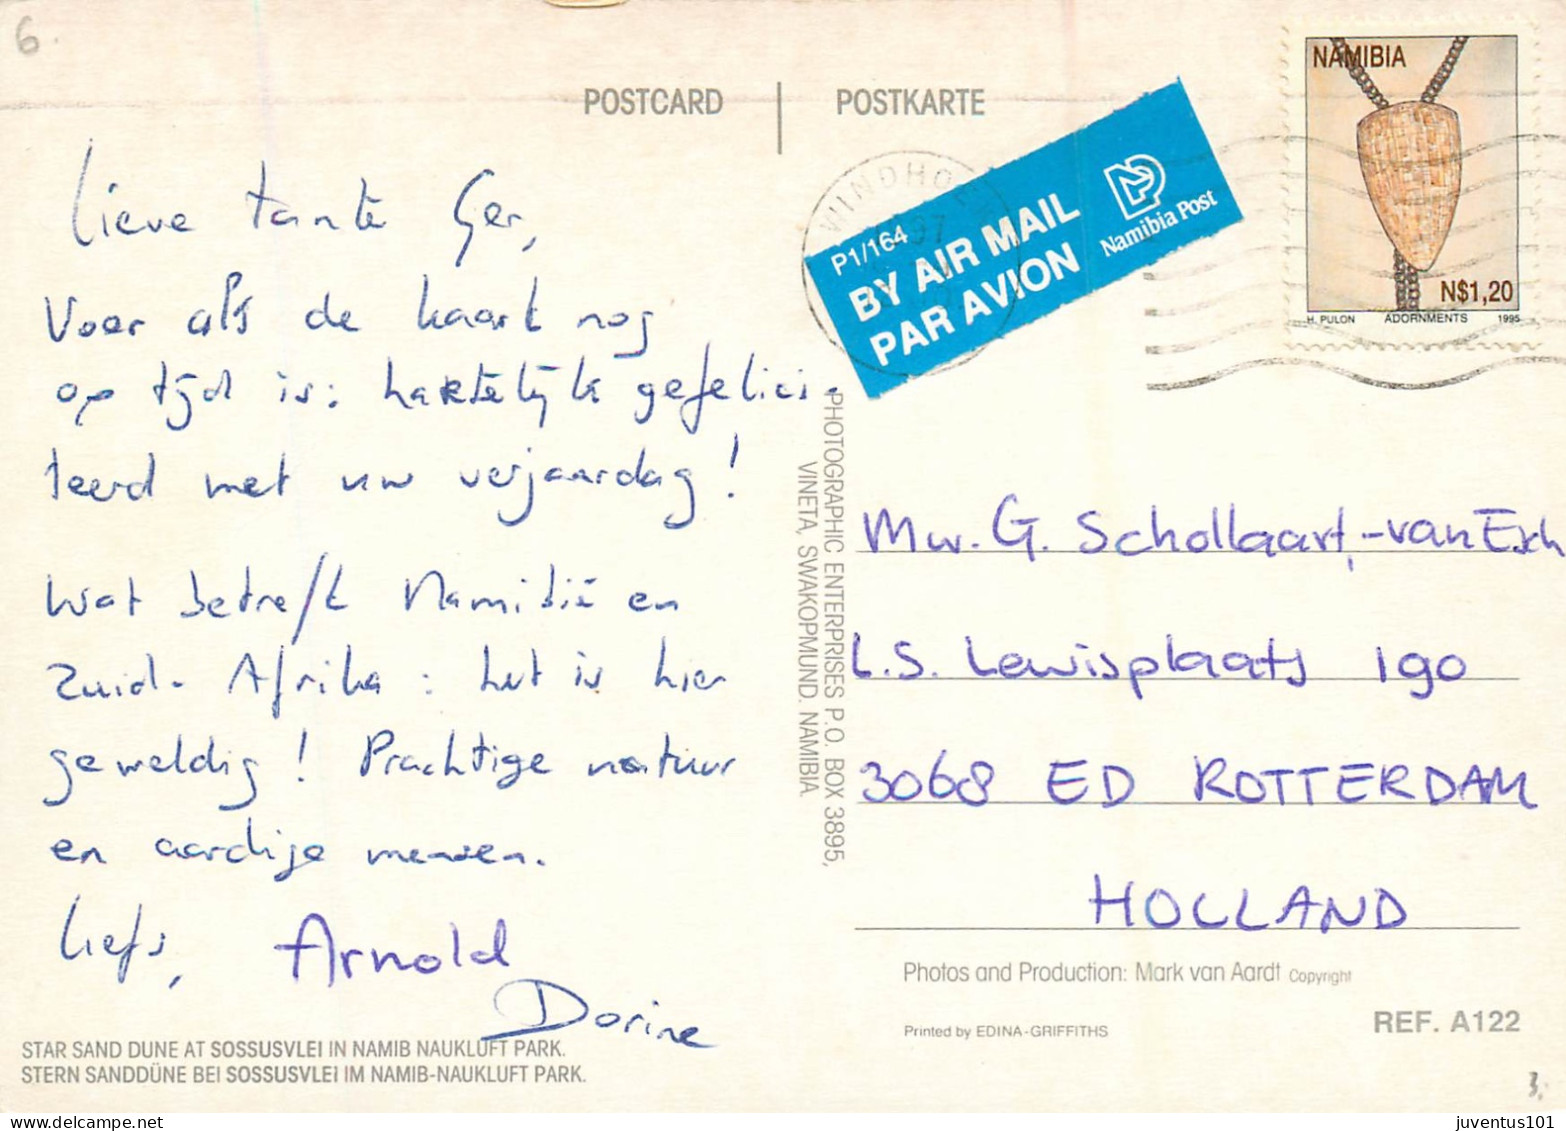 6.
POSTCARD
POSTKARTE
NAMIBIA
N$1,20
H. PULON ADORNMENTS 1995
WINDHOEK
97
P1/164
BY AIR MAIL
PAR AVION
Namibia Post
Lieve tante Ger,
Voor als de kaart nog
op tijd is: hartelijk gefelici-
teerd met uw verjaardag!
Wat betreft Namibië en
Zuid-Afrika: het is hier
geweldig! Prachtige natuur
en aardige mensen.
Liefs, Arnold
Dorine
STAR SAND DUNE AT SOSSUSVLEI IN NAMIB NAUKLUFT PARK.
STERN SANDDÜNE BEI SOSSUSVLEI IM NAMIB-NAUKLUFT PARK.
PHOTOGRAPHIC ENTERPRISES P.O. BOX 3895,
VINETA, SWAKOPMUND. NAMIBIA.
Mw. G. Schollaart-van Esch
L.S. Lewisplaats 190
3068 ED ROTTERDAM
HOLLAND
Photos and Production: Mark van Aardt Copyright
Printed by EDINA-GRIFFITHS
REF. A122
3,-
juventus101